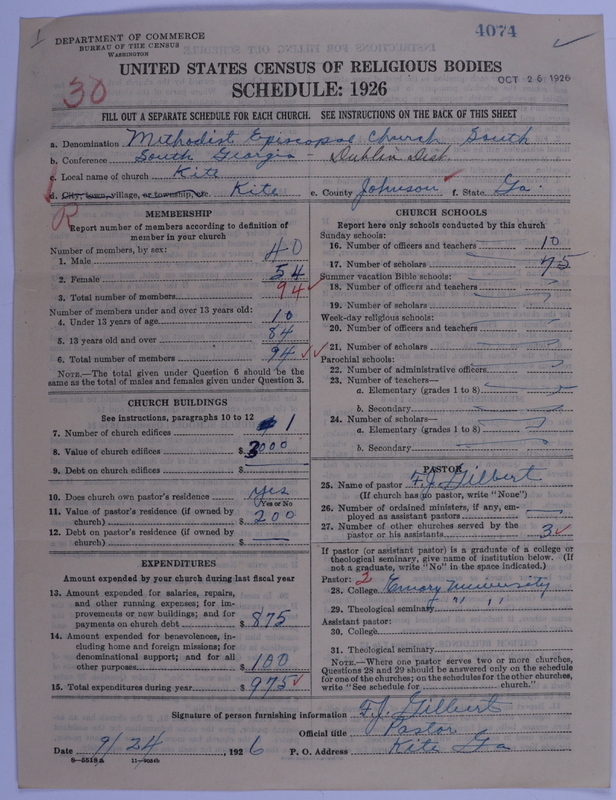 4074
DEPARTMENT OF COMMERCE
BUREAU OF THE CENSUS
WASHINGTON
UNITED STATES CENSUS OF RELIGIOUS BODIES
OCT 26 1926
SCHEDULE: 1926
30
FILL OUT A SEPARATE SCHEDULE FOR EACH CHURCH. SEE INSTRUCTIONS ON THE BACK OF THIS SHEET
a. Denomination Methodist Episcopal Church South
b. Conference South Georgia - Dublin Dist.
c. Local name of church Kite
d. City, town, village, or township, etc. Kite e. County Johnson f. State Ga.
R
MEMBERSHIP
Report number of members according to definition of
member in your church
Number of members, by sex:
1. Male 40
2. Female 54
3. Total number of members 94
Number of members under and over 13 years old:
4. Under 13 years of age 10
5. 13 years old and over 84
6. Total number of members 94
NOTE.—The total given under Question 6 should be the
same as the total of males and females given under Question 3.
CHURCH BUILDINGS
See instructions, paragraphs 10 to 12
7. Number of church edifices 1
8. Value of church edifices $ 3000
9. Debt on church edifices $
10. Does church own pastor's residence yes
(Yes or No)
11. Value of pastor's residence (if owned by
church) $ 200
12. Debt on pastor's residence (if owned by
church) $
EXPENDITURES
Amount expended by your church during last fiscal year
13. Amount expended for salaries, repairs,
and other running expenses; for im-
provements or new buildings; and for
payments on church debt $ 875
14. Amount expended for benevolences, in-
cluding home and foreign missions; for
denominational support; and for all
other purposes $ 100
15. Total expenditures during year $ 975
CHURCH SCHOOLS
Report here only schools conducted by this church
Sunday schools:
16. Number of officers and teachers 10
17. Number of scholars 75
Summer vacation Bible schools:
18. Number of officers and teachers
19. Number of scholars
Week-day religious schools:
20. Number of officers and teachers
21. Number of scholars
Parochial schools:
22. Number of administrative officers
23. Number of teachers—
a. Elementary (grades 1 to 8)
b. Secondary
24. Number of scholars—
a. Elementary (grades 1 to 8)
b. Secondary
PASTOR
25. Name of pastor F.J. Gilbert
(If church has no pastor, write "None")
26. Number of ordained ministers, if any, em-
ployed as assistant pastors
27. Number of other churches served by the
pastor or his assistants 3
If pastor (or assistant pastor) is a graduate of a college or
theological seminary, give name of institution below. (If
not a graduate, write "No" in the space indicated.)
Pastor: 2
28. College Emory University
29. Theological seminary " " "
Assistant pastor:
30. College
31. Theological seminary
NOTE.—Where one pastor serves two or more churches,
Questions 28 and 29 should be answered only on the schedule
for one of the churches; on the schedules for the other churches,
write "See schedule for church."
Signature of person furnishing information F.J. Gilbert
Official title Pastor
Date 9/24, 1926 P. O. Address Kite Ga
8-5518a 11-9034b